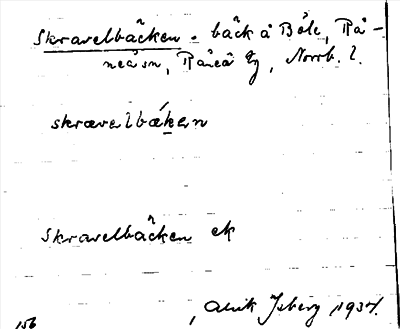 Skravelbäcken. bäck å Böle, Rå-
neå sn, Råneå tg, Norrb. l.
skrævelbækən
Skravelbäcken ek
, Alrik Isberg 1934.
156